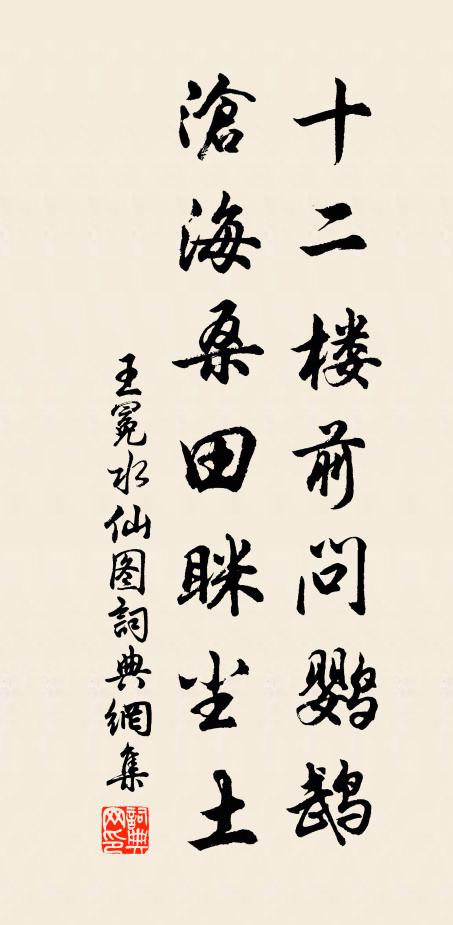 十二楼前问鹦鹉
滄海桑田眯尘土
王冕水仙图詞典網集
詞典网印